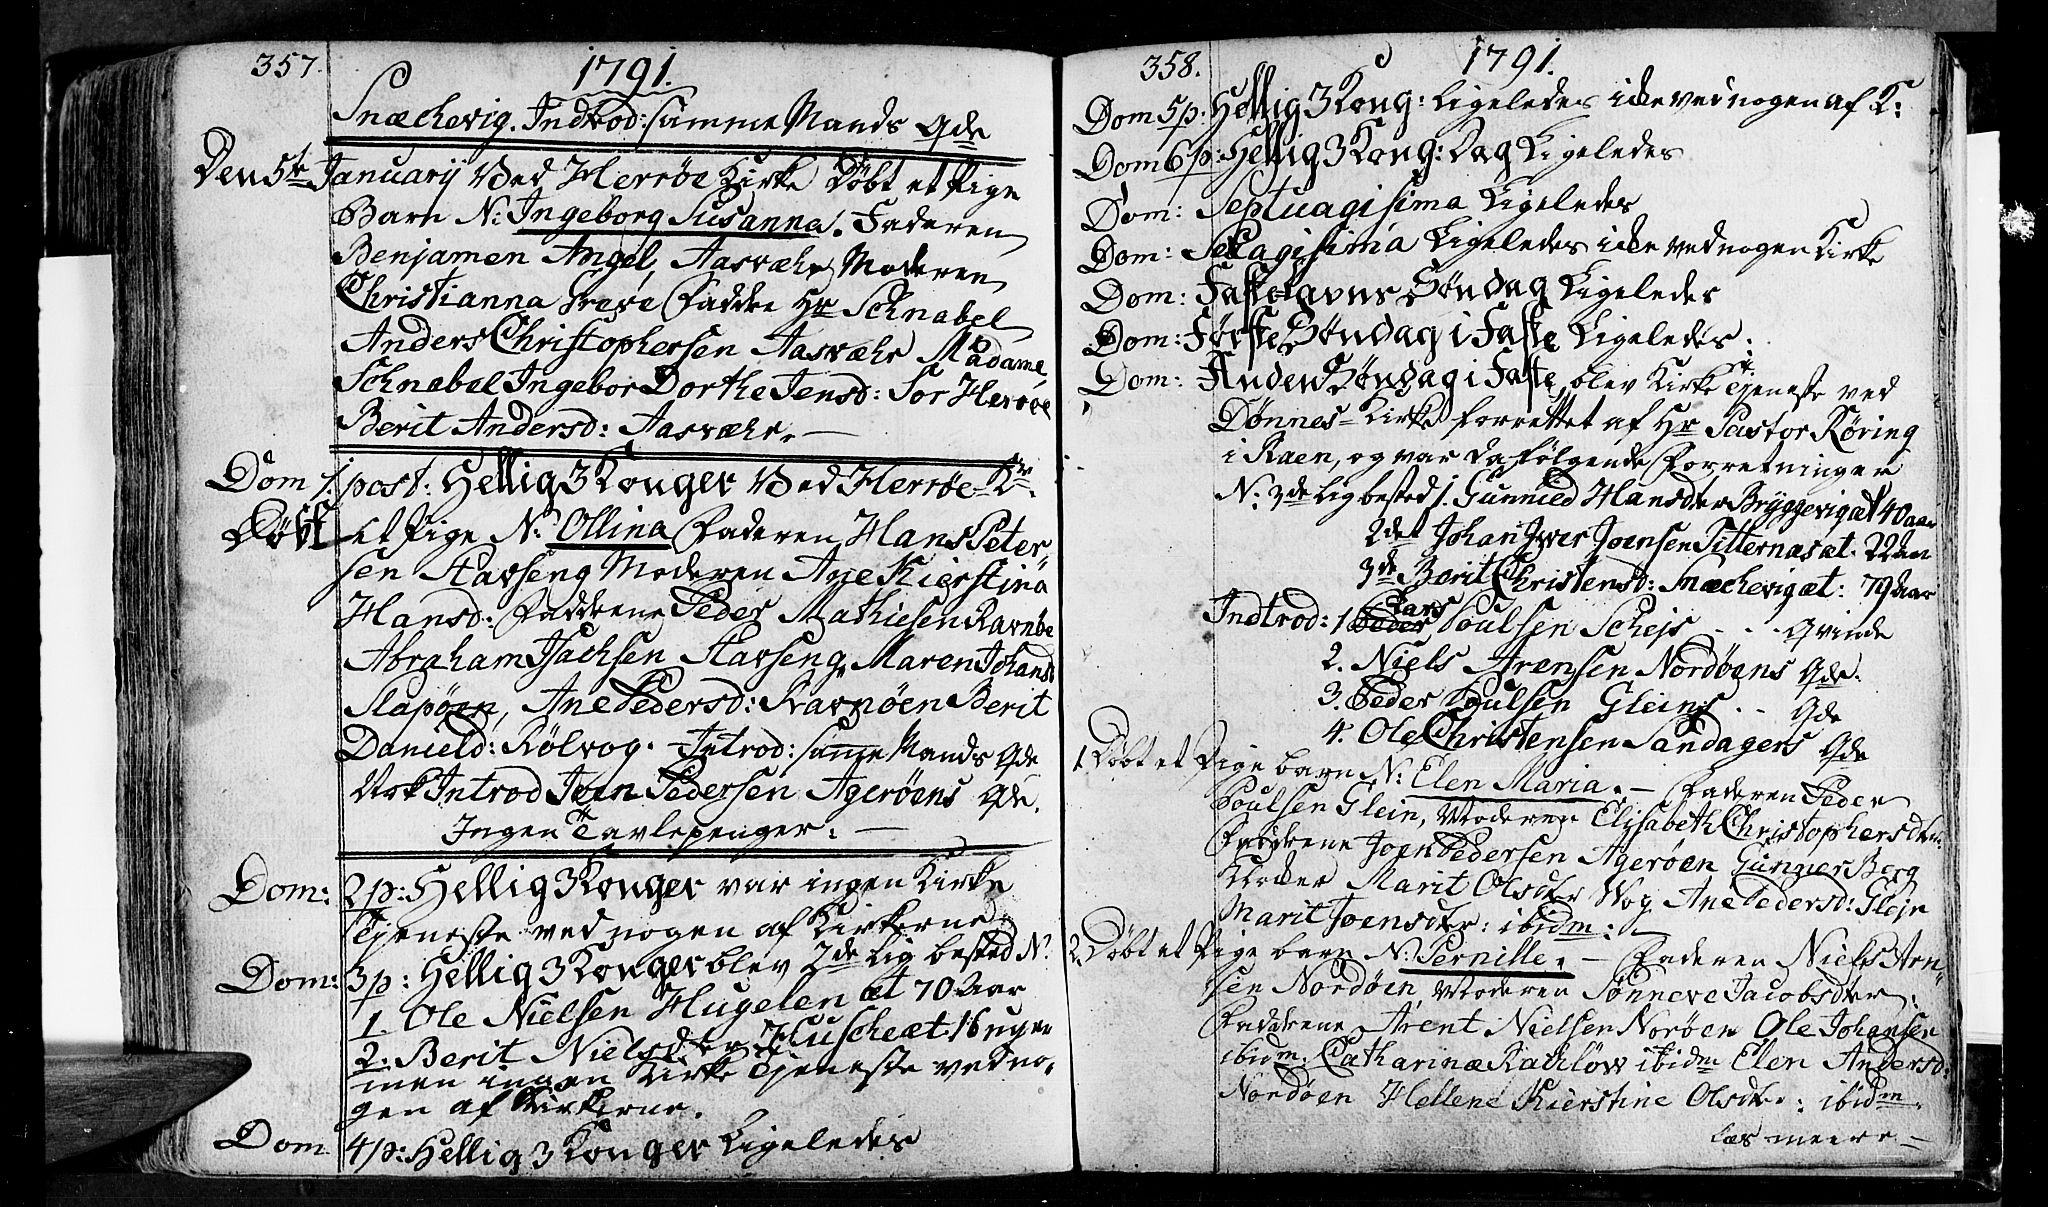 357.
1791.
Snæchevig. Indtrod: samme Mands Qde
Den 5te January Ved Herrøe Kirke Døbt et Pige
Barn N: Ingeborg Susanna. Faderen
Benjamen Angel, Aasvæhr Moderen
Christianna Faddre Hr Schnabel
Anders Christophersen Aasvæhr Madame
Schnabel Ingebor Dorthe Jensd: Sør Herrøe
Berit Andersd: Aasvæhr. —
Dom 1. post: Hellig 3 Konger Ved Herrøe K
Døbt et Pige N: Ollina Faderen Hans Peter
sen Stavseng Moderen Ane Kierstina
Hansd: Faddrene Peder Mathiesen Ravnøe
Abraham Isachsen Stavseng, Maren Johansd
Slapøen, Ane Pedersd: Skavnøen Berit
Danield: Rølvog. Introd: samme Mands Qde
Nok Introd Joen Pedersen Agerøens Qde.
Ingen Tavlepenger. —
Dom: 2 p: Hellig 3 Konger var ingen Kirke
Tjeneste ved nogen af Kirkerne
Dom: 3 p: Hellig 3 Konger blev 2de Lig bested N:
1. Ole Nielsen Hugelen æt 70 Aar
2. Berit Nielsdter Huscheæt. 16 uger
men ingen Kirke Tjeneste ved no-
gen af Kirkerne.
Dom 4 p: Hellig 3 Konger Ligeledes
358.
1791.
Dom 5 p: Hellig 3 Kong: Ligeledes icke ved nogen af K:
Dom 6 p: Hellig 3 Kong: Dag Ligeledes
Dom: Septuagisima Ligeledes
Dom: Sexagisima Ligeledes icke ved nogen Kirke
Dom: Fastelavns Søndag Ligeledes
Dom: Første Søndag i Faste Ligeledes.
Dom: Anden Søndag i Faste, blev Kirke Tjeneste ved
Dønnes Kirke forrettet af Hr Pastor Røring
i Raen, og var da følgende Forretninger
N: 3de Lig bested 1. Gunnild Hansdter Bryggevig æt 40 aar
2det Johan Iver Joensen Titternæs æt. 22
3de Berit Christensd: Snæchevig æt: 79 Aar
Indtrod: 1 Peder Lars Poulsen Schejs . . . Qvinde
2. Niels Arensen Nordøens Qde.
3. Peder Poulsen Gleins . . Qde
4. Ole Christensen Sandagers Qde
1 Døbt et Pige barn N: Elen Maria. — Faderen Peder
Poulsen Glein, Moderen Elisabeth Christophersdter
Faddrene Joen Pedersen Agerøen Gunner Berg
Klocker Marit Olsdter Wog Ane Pedersd: Glejn
Marit Joensdter: ibidm: —
2. Døbt et Pige barn N: Pernille. — Faderen Niels Arn
sen Nordøen, Moderen Sønneve Jacobsdter.
Faddrene Arent Nielsen Norøen Ole Johansen
ibidm. Catharina Rachløw ibidm Elen Andersd:
Nordøen Hellene Kierstine Olsdter: ibidm.
læs meere —